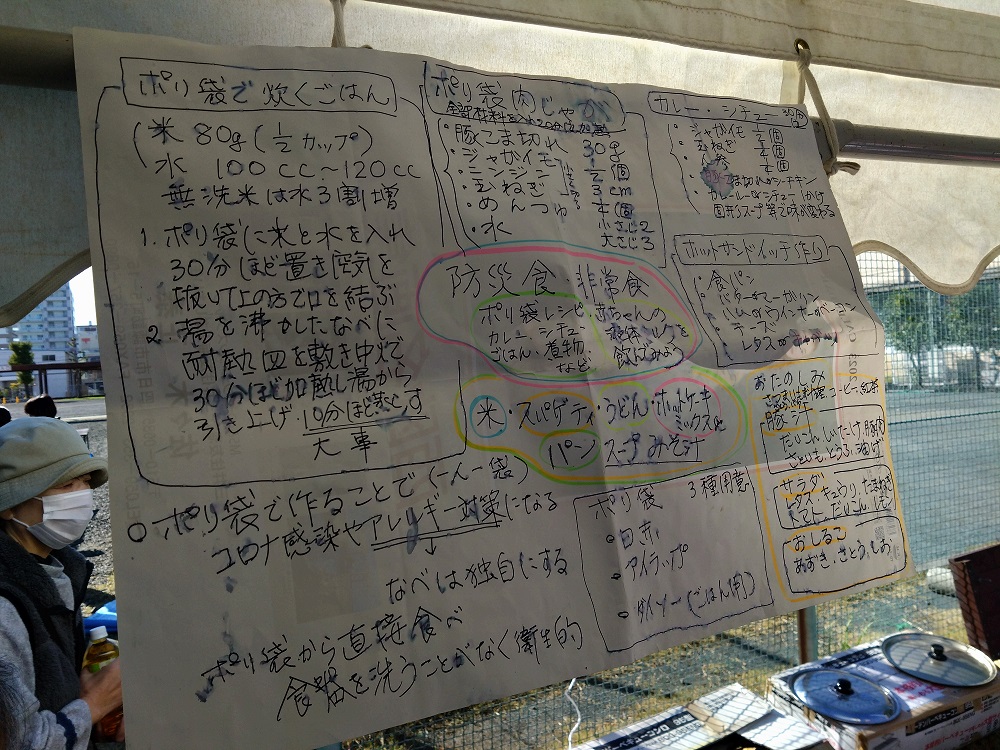 ポリ袋で炊くごはん
米 80g(1/2カップ)
水 100cc～120cc
無洗米は水3割増
1. ポリ袋に米と水を入れ
30分ほど置き空気を
抜いて上の方で口を結ぶ
2. 湯を沸かしたなべに
耐熱皿を敷き中火で
30分ほど加熱し湯から
引き上げ10分ほど蒸らす
大事
○ポリ袋で作ることで(一人一袋)
コロナ感染やアレルギー対策になる
なべは独自にする
ポリ袋から直接食べ
食器を洗うことがなく衛生的
ポリ袋肉じゃが
・豚こま切れ 30g
・ジャガイモ 1/2個
・ニンジン 3cm
・玉ねぎ 1/4個
・めんつゆ 小さじ2
・水 大さじ3
防災食 非常食
ポリ袋レシピ
カレー、シチュー、
ごはん・煮物、
など
赤ちゃんの
液体ミルクを
飲んでみよう
米・スパゲティ・うどん・ホットケーキ
ミックス他
パン スープ みそ汁
ポリ袋 3種用意
○白赤
○アイラップ
○ダイソー(ごはん用)
カレー・シチュー
・ジャガイモ 1/2個
・玉ねぎ 1/4個
・人参 1/4個
こま切れかシチキン
・カレールーORシチュー
スープ等で味が変わる
ホットサンドイッチ作り
・食パン
・バターorマーガリン
・ハムorウインナーorベーコン
・チーズ
・レタス
おたのしみ
コーヒー、紅茶
豚汁
だいこん、しいたけ、豚肉
さといも、とうふ、油あげ
サラダ
レタス、キュウリ、たまねぎ
トマト、だいこん、しそ
おしるこ
あずき、さとう、しお